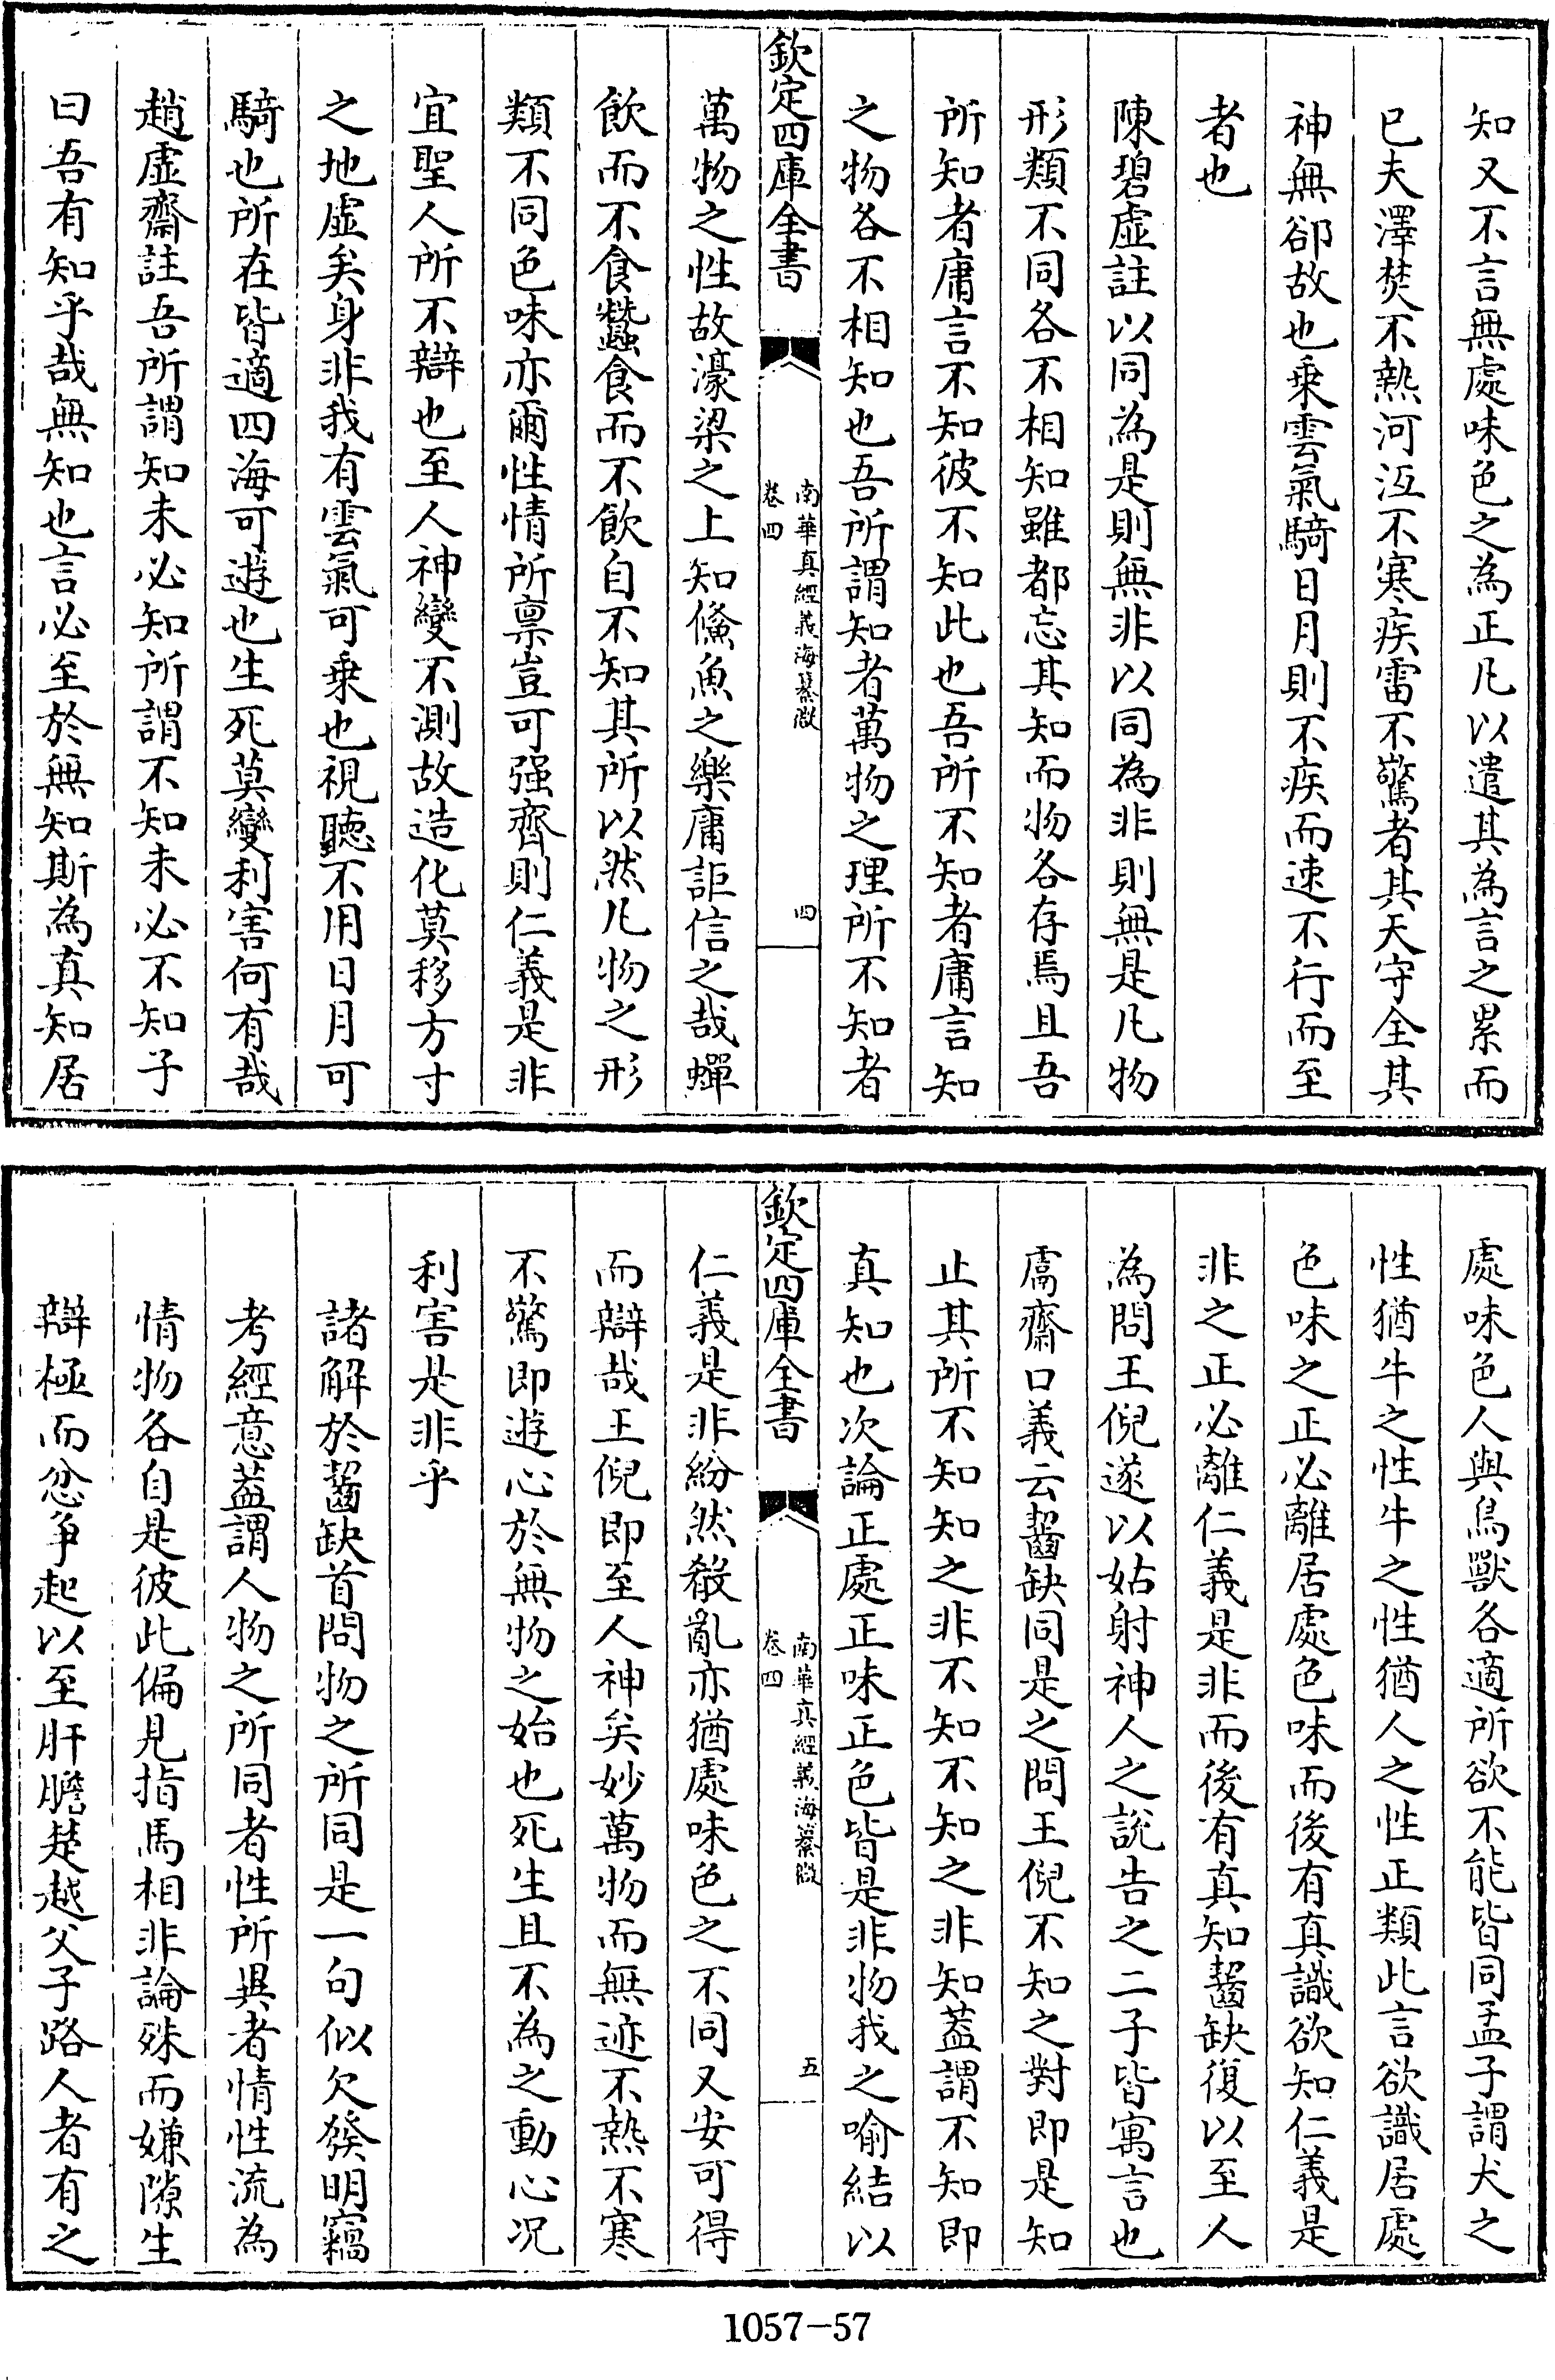 知又不言無處味色之為正凡以遣其為言之累而
已夫澤焚不熱河沍不寒疾雷不驚者其天守全其
神無郤故也乗雲氣騎日月則不疾而速不行而至
者也
陳碧虛註以同為是則無非以同為非則無是凡物
形類不同各不相知雖都忘其知而物各存焉且吾
所知者庸言不知彼不知此也吾所不知者庸言知
之物各不相知也吾所謂知者萬物之理所不知者
欽定四庫全書
南華真經義海纂微
卷四
四
萬物之性故濠梁之上知鯈魚之樂庸詎信之哉蟬
飲而不食蠶食而不飲自不知其所以然凡物之形
類不同色味亦爾性情所禀豈可强齊則仁義是非
宜聖人所不辯也至人神變不測故造化莫移方寸
之地虛矣身非我有雲氣可乗也視聽不用日月可
騎也所在皆適四海可遊也生死莫變利害何有哉
趙虛齋註吾所謂知未必知所謂不知未必不知子
曰吾有知乎哉無知也言必至於無知斯為真知居
處味色人與鳥獸各適所欲不能皆同孟子謂犬之
性猶牛之性牛之性猶人之性正類此言欲識居處
色味之正必離居處色味而後有真識欲知仁義是
非之正必離仁義是非而後有真知齧缺復以至人
為問王倪遂以姑射神人之說告之二子皆寓言也
鬳齋口義云齧缺同是之問王倪不知之對即是知
止其所不知知之非不知不知之非知蓋謂不知即
真知也次論正處正味正色皆是非物我之喻結以
欽定四庫全書
南華真經義海纂微
卷四
五
仁義是非紛然殽亂亦猶處味色之不同又安可得
而辯哉王倪即至人神矣妙萬物而無迹不熱不寒
不驚即遊心於無物之始也死生且不為之動心况
利害是非乎
諸解於齧缺首問物之所同是一句似欠發明竊
考經意葢謂人物之所同者性所異者情性流為
情物各自是彼此偏見指馬相非論殊而嫌隙生
辯極而忿争起以至肝膽楚越父子路人者有之
1057-57